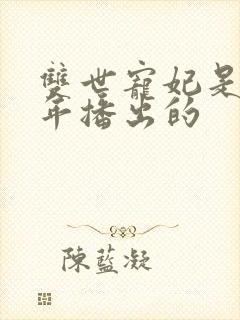 雙世寵妃是
年播出的
陳藍凝